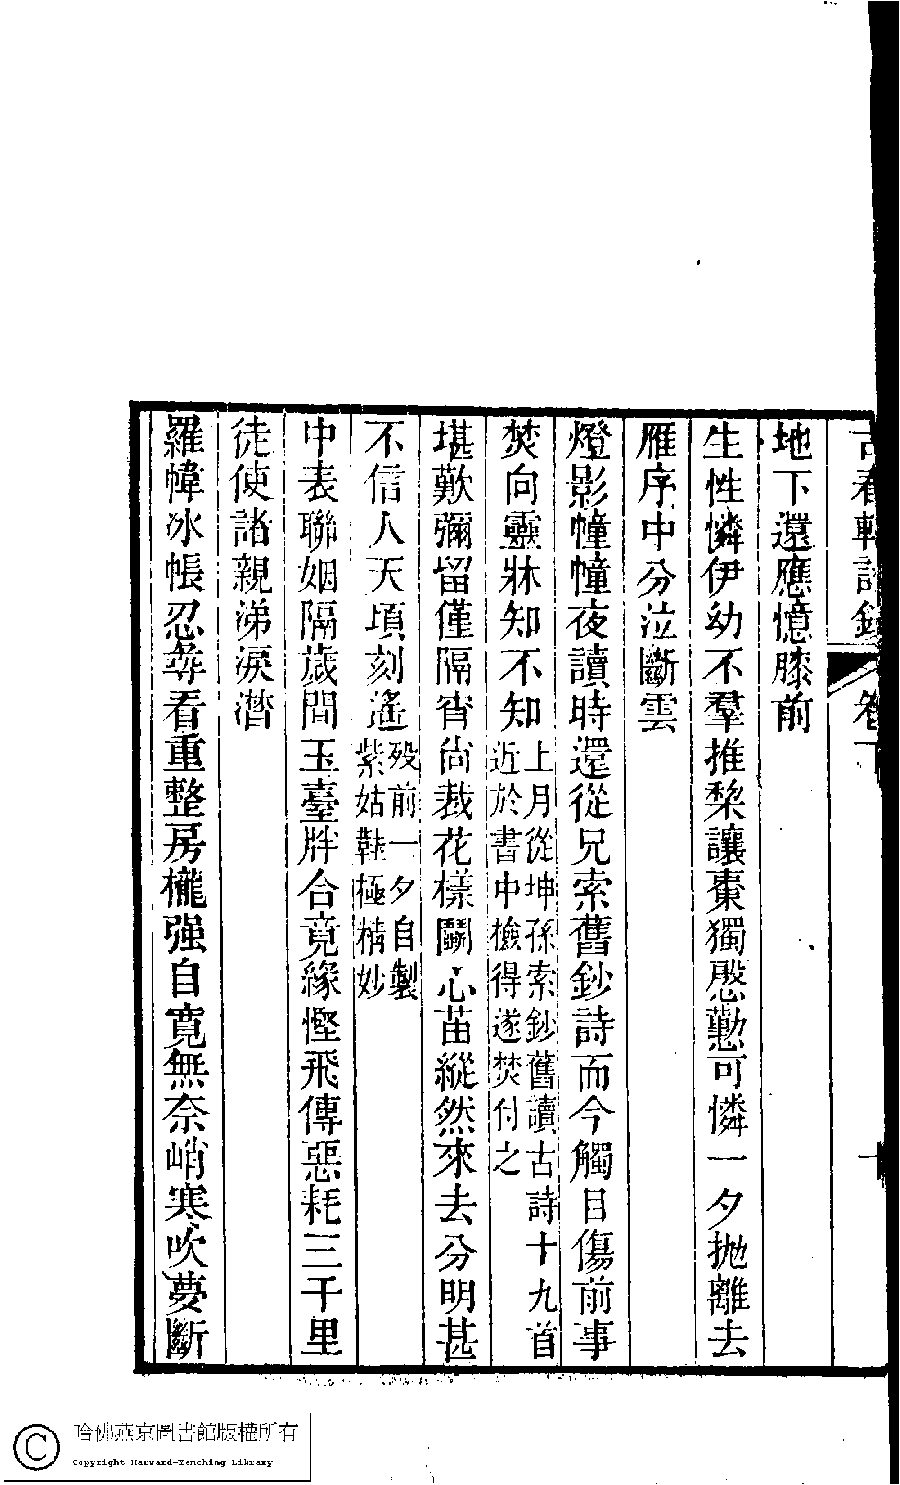 古春軒詩鈔 卷一 十
地下還應憶膝前
生性憐伊幼不羣推棃讓棗獨慇懃可憐一夕拋離去
雁序中分泣斷雲
燈影幢幢夜讀時還從兄索舊鈔詩而今觸目傷前事
焚向靈牀知不知上月從坤孫索鈔舊讀古詩十九首
近於書中檢得遂焚付之
堪歎彌留僅隔宵尙裁花樣鬭心苗縱然來去分明甚
不信人天頃刻遙歿前一夕自製
紫姑鞋極精妙
中表聯姻隔歲間玉臺牉合竟緣慳飛傳惡耗三千里
徒使諸親涕淚潸
羅幃冰帳忍尋看重整房櫳强自寬無奈峭寒吹夢斷
哈佛燕京圖書館版權所有
Copyright Harvard-Yenching Library